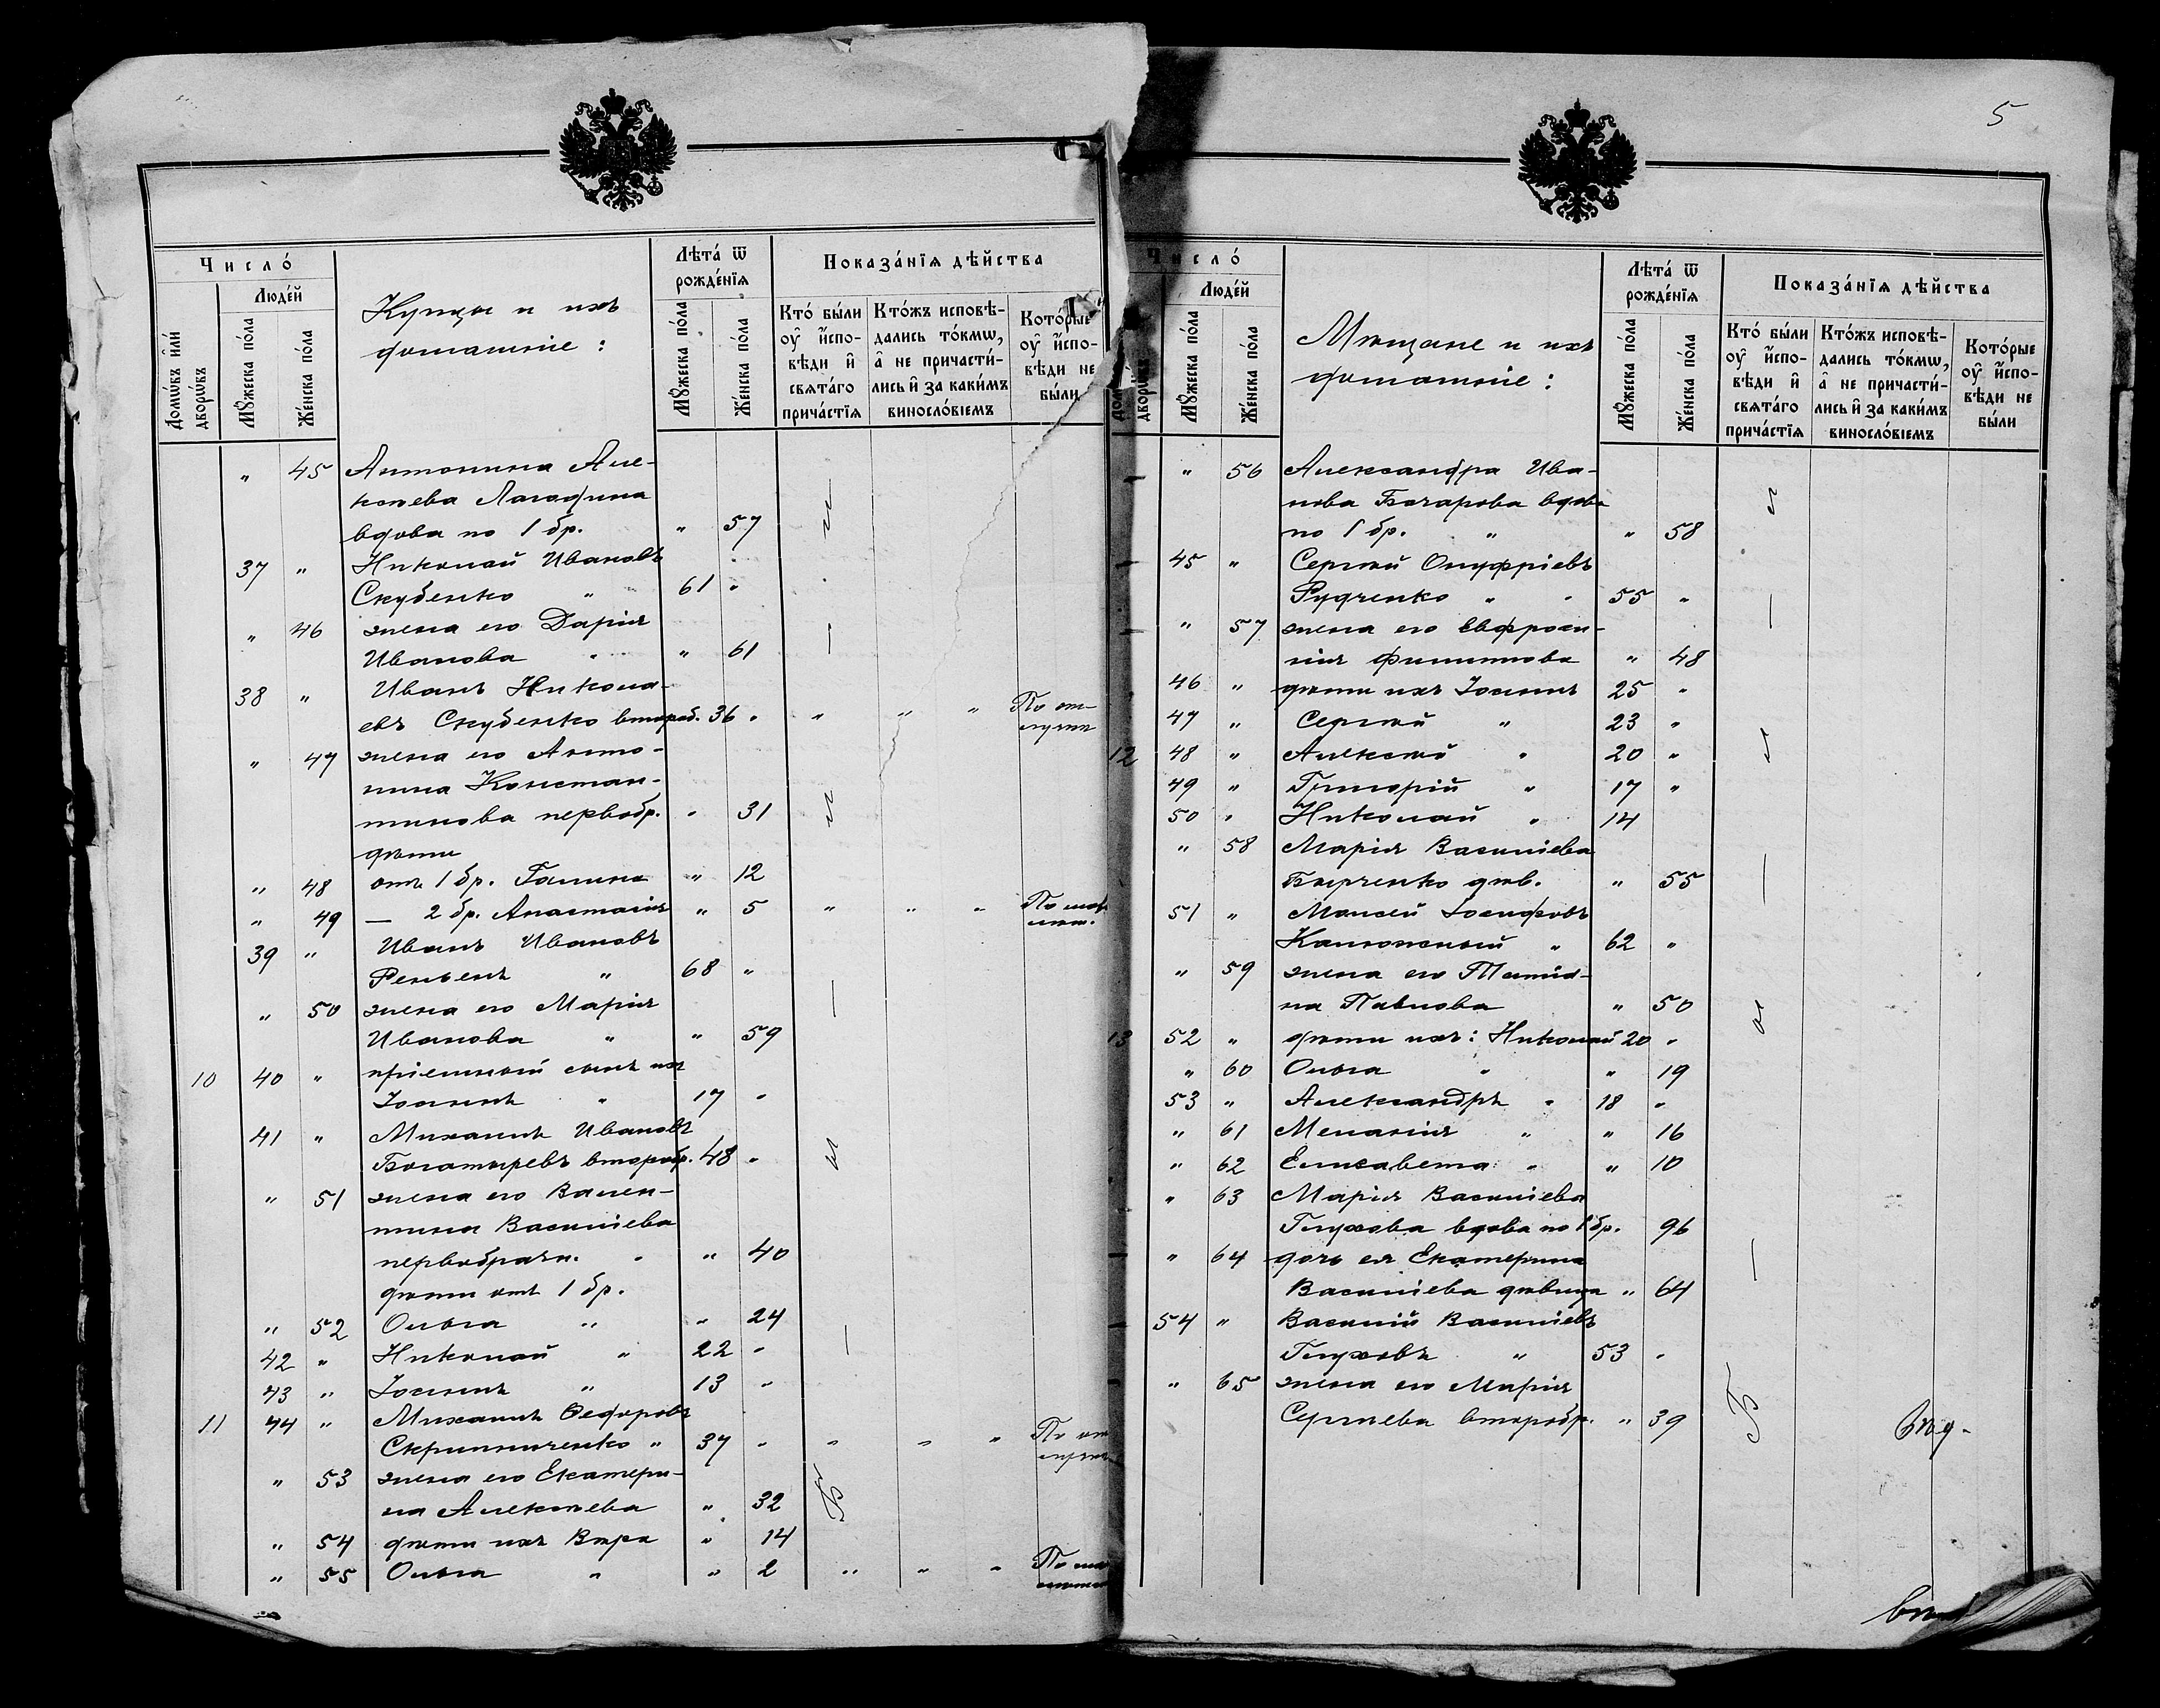 Число́
Люде́й
Домѡ́въ и҆лѝ дворѡ́въ
Мꙋ́жеска по́ла
Же́нска по́ла
Купцы и ихъ
домашніе :
Лѣта̀ ѿ
рожде́нїѧ
Мꙋ́жеска по́ла
Же́нска по́ла
Показа́нїѧ дѣ́йства
Кто̀ бы́ли оу҆ и҆спо-вѣди и҆ свѧта́го прича́стїѧ
Кто́жъ исповѣ-дались то́кмѡ, а҆ не причасти́-лись и҆ за каки́мъ винослові́емъ
Кото́рые оу҆ и҆спо-вѣди не бы́ли
" 45 Антонина Але-
ксѣева Лагодина
вдова по 1 бр. " 57
37 " Николай Ивановъ
Скубенко " 61 "
" 46 жена его Дарія
Иванова " " 61
38 " Иванъ Никола-
евъ Скубенко второб. 36 " " " " По от-
лучкѣ
" 47 жена его Анто-
нина Констан-
тинова первобр. " 31
дѣти
" 48 отъ 1 бр. Галина " 12
" 49 — 2 бр. Анастасія " 5 " " " По мал
лѣт.
39 " Иванъ Ивановъ
" 68 "
" 50 жена его Марія
Иванова " " 59
10 40 " пріемный сынъ ихъ
Іоаннъ " 17 "
41 " Михаилъ Ивановъ
Богатыревъ второбр. 48 "
" 51 жена его Вален-
тина Василіева
первобрачн. " " 40
дѣти отъ 1 бр.
" 52 Ольга " " 24
42 " Николай " 22 "
43 " Іоаннъ " 13 "
11 44 " Михаилъ Ѳедоровъ
Скрипниченко " 37 " " " " По от
лучкѣ
" 53 жена его Екатери-
на Алексѣева " 32
" 54 дѣти ихъ Вѣра " 14
" 55 Ольга " " 2 " " " По ма
5
Число́
Люде́й
дворѡ́въ
Мꙋ́жеска по́ла
Же́нска по́ла
Мѣщане и ихъ
домашніе :
Лѣта̀ ѿ
рожде́нїѧ
Мꙋ́жеска по́ла
Же́нска по́ла
Показа́нїѧ дѣ́йства
Кто̀ бы́ли оу҆ и҆спо-вѣди и҆ свѧта́го прича́стїѧ
Кто́жъ исповѣ-дались то́кмѡ, а҆ не причасти́-лись и҆ за каки́мъ винослові́емъ
Кото́рые оу҆ и҆спо-вѣди не бы́ли
" 56 Александра Ива-
нова Бочарова вдова
по 1 бр. " " 58
45 " Сергѣй Онуфріевъ
Рудченко " " 55 "
" 57 жена его Евфроси-
нія Филиппова " 48
46 " дѣти ихъ Іоаннъ 25 "
47 " Сергѣй " 23 "
12 48 " Алексѣй " 20 "
49 " Григорій " 17 "
50 " Николай " 14
" 58 Марія Василіева
дѣв. " 55
51 " Моисей Іосифовъ
Калюжный " 62 "
" 59 жена его Татіа-
на Павлова " 50
13 52 " дѣти ихъ: Николай 20 "
" 60 Ольга " " 19
53 " Александръ " 18 "
" 61 Меланія " " 16
" 62 Елисавета " " 10
" 63 Марія Василіева
Глухова вдова по 1 бр. 96
" 64 дочь ея Екатерина
Василіева дѣвица " 64
54 " Василій Василіевъ
Глуховъ " 53 "
" 65 жена его Марія
Сергѣева второбр. " 39